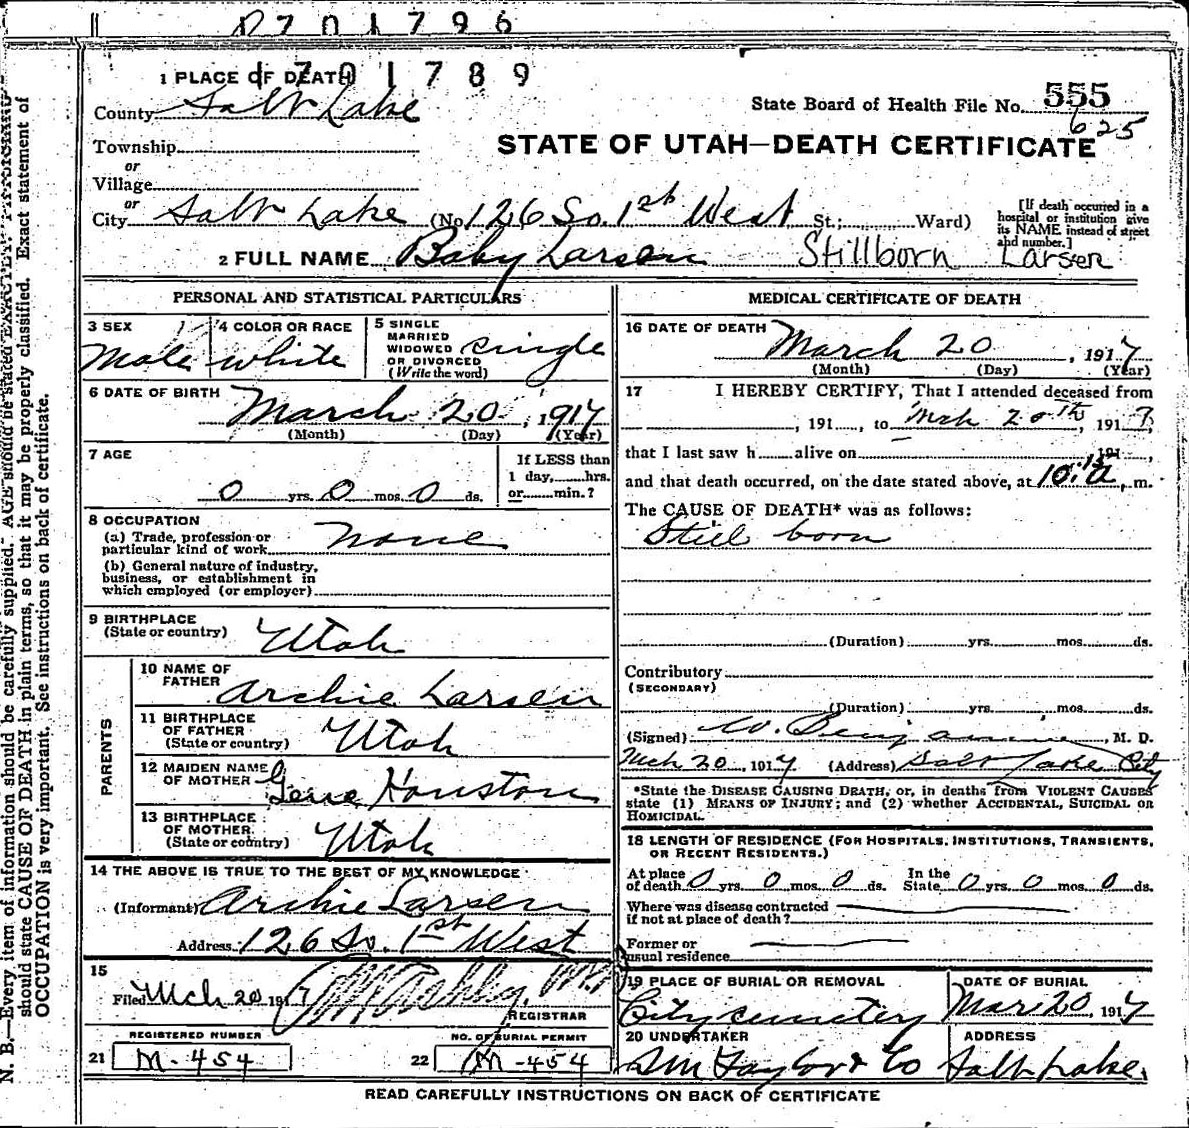 0701796
1701789
1 PLACE OF DEATH
County Salt Lake
State Board of Health File No. 555
625
Township
or
Village
or
STATE OF UTAH—DEATH CERTIFICATE
City Salt Lake (No. 126 So. 1st West St.; Ward)
[If death occurred in a hospital or institution give its NAME instead of street and number.]
2 FULL NAME Baby Larsen Stillborn Larsen
PERSONAL AND STATISTICAL PARTICULARS
3 SEX Male
4 COLOR OR RACE white
5 SINGLE MARRIED WIDOWED OR DIVORCED (Write the word) single
6 DATE OF BIRTH March 20, 1917
(Month) (Day) (Year)
7 AGE 0 yrs. 0 mos. 0 ds.
If LESS than 1 day, hrs. or min.?
8 OCCUPATION
(a) Trade, profession or particular kind of work none
(b) General nature of industry, business, or establishment in which employed (or employer)
9 BIRTHPLACE (State or country) Utah
PARENTS
10 NAME OF FATHER Archie Larsen
11 BIRTHPLACE OF FATHER (State or country) Utah
12 MAIDEN NAME OF MOTHER Gene Houston
13 BIRTHPLACE OF MOTHER (State or country) Utah
14 THE ABOVE IS TRUE TO THE BEST OF MY KNOWLEDGE
(Informant) Archie Larsen
Address 126 So. 1st West
15
Filed Mch 20 1917
REGISTRAR
REGISTERED NUMBER
21 M-454
NO. OF BURIAL PERMIT
22 M-454
MEDICAL CERTIFICATE OF DEATH
16 DATE OF DEATH March 20, 1917
(Month) (Day) (Year)
17 I HEREBY CERTIFY, That I attended deceased from
, 191 , to Mch 20th, 1917,
that I last saw h alive on 191 ,
and that death occurred, on the date stated above, at 10:15 a, m.
The CAUSE OF DEATH* was as follows:
Still born
(Duration) yrs. mos. ds.
Contributory
(SECONDARY)
(Duration) yrs. mos. ds.
(Signed) W. Benjamin, M. D.
Mch 20, 1917 (Address) Salt Lake City
*State the DISEASE CAUSING DEATH, or, in deaths from VIOLENT CAUSES
state (1) MEANS OF INJURY; and (2) whether ACCIDENTAL, SUICIDAL OR
HOMICIDAL.
18 LENGTH OF RESIDENCE (FOR HOSPITALS, INSTITUTIONS, TRANSIENTS,
OR RECENT RESIDENTS.)
At place of death 0 yrs. 0 mos. 0 ds. In the State 0 yrs. 0 mos. 0 ds.
Where was disease contracted
if not at place of death?
Former or
usual residence
19 PLACE OF BURIAL OR REMOVAL City cemetery
DATE OF BURIAL Mar 20, 1917
20 UNDERTAKER SM Taylor & Co
ADDRESS Salt Lake
READ CAREFULLY INSTRUCTIONS ON BACK OF CERTIFICATE
N. B.—Every item of information should be carefully supplied. AGE should be stated EXACTLY.
should state CAUSE OF DEATH in plain terms, so that it may be properly classified. Exact statement of
OCCUPATION is very important. See instructions on back of certificate.